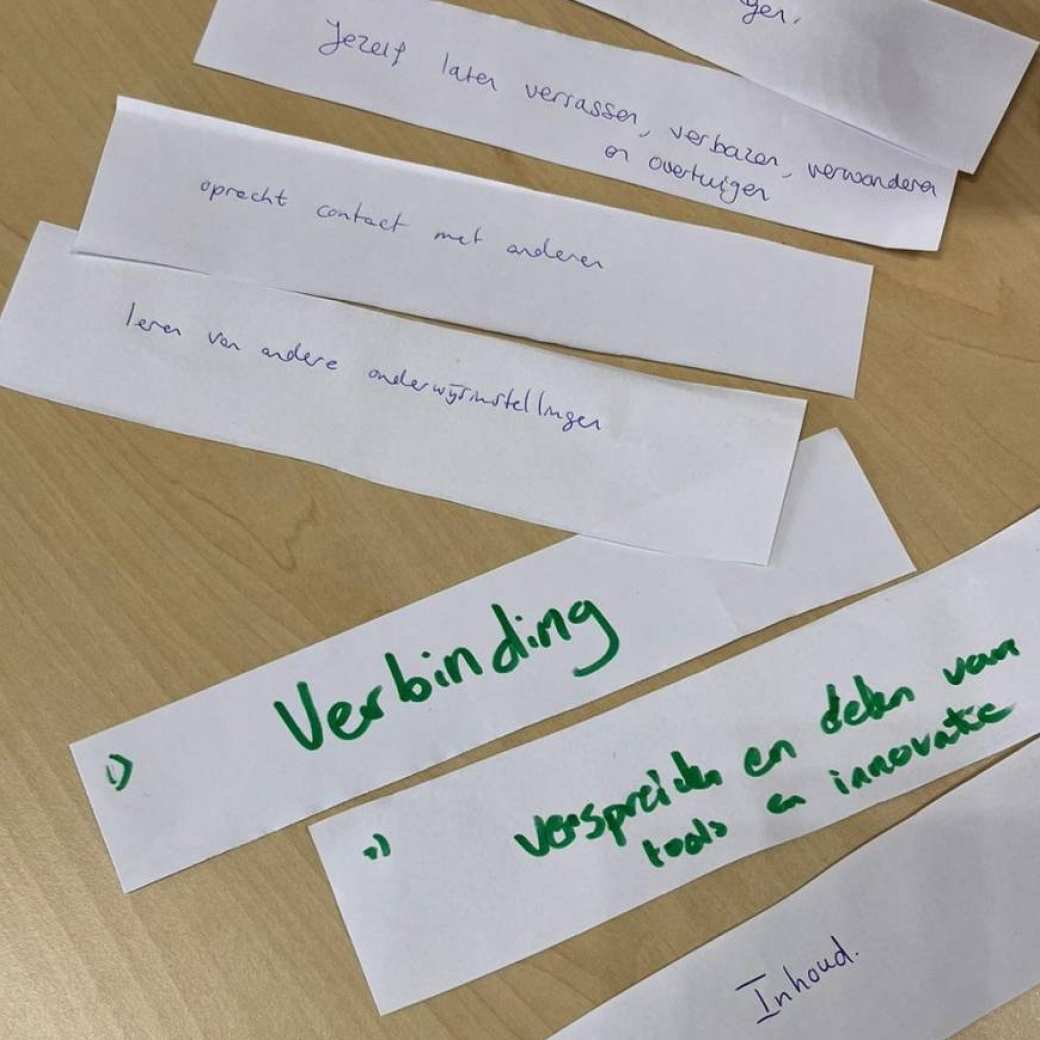 gen.
Jezelf laten verrassen, verbazen, verwonderen
en overtuigen
oprecht contact met anderen
leren van andere onderwijsinstellingen
1) Verbinding
2) verspreiden en delen van
tools en innovatie
Inhoud.